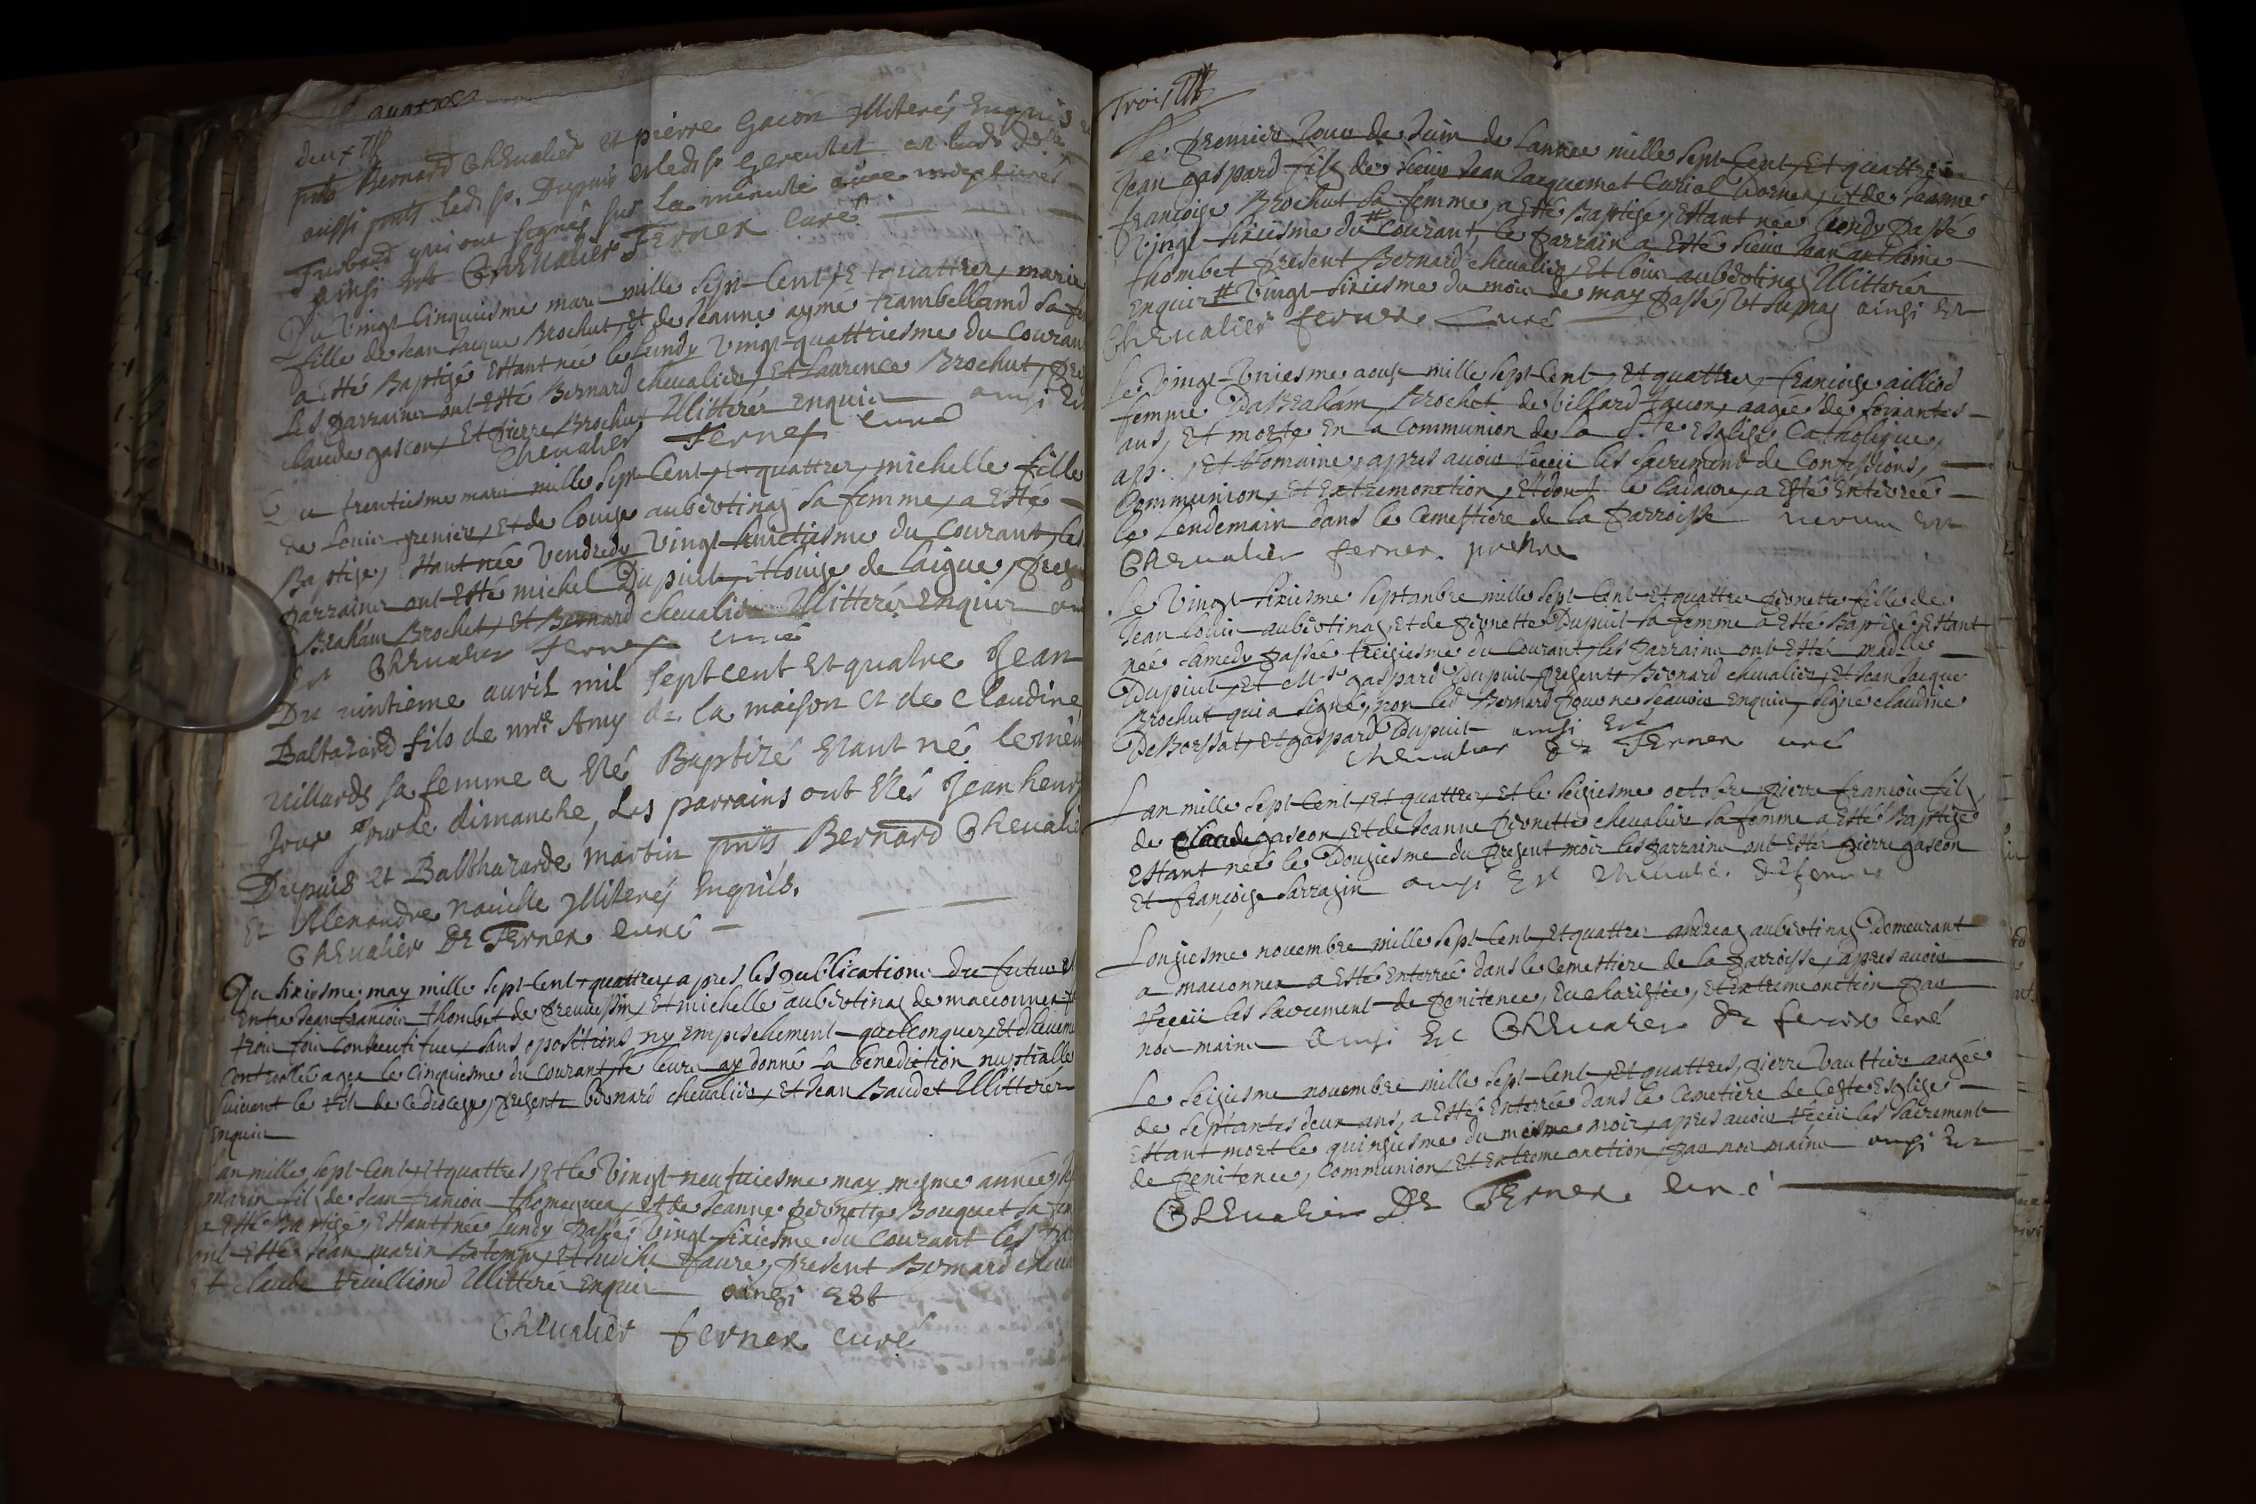 deux
pnts Bernard Chevalier et pierre Gacon Illiterés Enquis
aussi pnts led. sr. Dupuis et led. sr.
qui ont signés sur la minute avec
ainsi est Chevalier Ferner Curé
Du Vingt Cinquiesme mars mille Sept Cent Et quattres, marie
fille de Jean Jacque Brochut, Et de Jeanne aymé trambelland Sa
a esté Baptisé Estant née le lundy Vingt quattriesme du Courant
Les parrains ont Esté Bernard chevalier, Et Laurence Brochut,
claude gascon, Et pierre Brochut Illitterés enquis ainsi Est
Chevalier Ferner curé
Du trentiesme mars mille Sept Cent, Et quattres, michelle fille
de Louis grenier, Et de Louise aubertinaz sa femme, a Esté
Baptisé, Estant née Vendredy Vingt huictiesme du Courant, les
parrains ont Esté michel Dupuit, Et louise de laigue,
Braham Brochet, Et Bernard chevalier Illitterés Enquis
Est Chevalier Ferner curé
Du vintieme avril mil sept cent et quatre Jean
Baltazard fils de mre Amy de la maison et de Claudine
villards sa femme a Eté Baptizé Etant né le meme
Jour Jour de dimanche, Les parrains ont Etés Jean henry
Dupuis et Balthazarde martin pnts Bernard Chevalier
Et Alexandre naville Illiterés Enquis.
Chevalier De Ferner curé
Du sixiesme may mille Sept Cent quattres, apres les publications du futur
Entre Jean francois thombet de prevessin, Et michelle aubertinaz de maconnex
trois fois Consecutifues, sans opositions ny Empeschement quelconques, Et
Controllé a gex le Cinquiesme du Courant, Je leurs ay donné la benediction nuptialle
suivant le rit de ce diocese, presents bernard chevalier, Et Jean Baudet Illitterés
Enquis
Lan mille Sept Cent, Et quattres, Et le Vingt neufuiesme may mesme année,
marin fils de Jean francois thomeguex, Et de Jeanne pernette Bouquet Sa
a Esté Baptisé, Estant née lundy Passé Vingt sixiesme du Courant les
ont Esté Jean marin Et Judihe faure, present Bernard
Et claude Illitterés Enquis ainsi Est
Chevalier ferner curé
Trois
Le premier Jour de Juin de Lannee mille Sept Cent Et quattres
Jean gaspard fils de sieur Jean Jacquemet Curial dornex, Et de Jeanne
francoise Brochut sa femme, a Esté Baptisé, Estant née lundy passé
Vingt sixiesme du # Courant, le parrain a Esté sieur Jean anthoine
thombet present Bernard chevalier, Et louis aubertinaz Illitterés
Enquis # Vingt sixiesme du mois de may passé, Vt supra, ainsi Est
Chevalier ferner Curé
Le Vingt Uniesme aoust mille Sept Cent, Et quattres, francoise
femme Dabraham Brochet de villard tacon, aagée de soixantes
ans, Et morte En la Communion de la Ste Esglise Catholique,
app. Et Romaine, apres avoir Receü les sacrement de Confessions,
Communion, Et Extremonction, Et dont le Cadavre, a Esté Enterreé
le Lendemain dans le Cemestiere de la Parroisse Est
Chevalier ferner. prestre
Le Vingt sixiesme Septanbre mille Sept Cent Et quattre pernette fille de
Jean louis aubertinaz, Et de pernette Dupuit sa femme a Esté Baptisé, Estant
née samedy passée treiziesme du Courant, les parrains ont Esté madlle
Dupuit, Et Mr. gaspard Dupuit presents Bernard chevalier, Et Jean Jacque
Brochut qui a signé, non led Bernard pour ne scavoir enquis, signé claudine
De Borssat, Et gaspard Dupuit ainsi Est
Chevalier De Ferner curé
Lan mille Sept Cent, Et quattres, Et le seiziesme octobre, pierre francois fils
de Claude gascon, Et de Jeanne pernette chevalier sa femme a Esté Baptisé
Estant née le Douziesme du present mois les parrains ont Esté pierre gascon
Et françoise sarrazin ainsi Est Chevalier De ferner
Lonziesme novembre mille Sept Cent, Et quattres andreaz aubertinaz Demeurant
a maconnex a Esté Enterreé dans le Cemettiere de la Parroisse, apres avoir
Receü les sacrement de penitence, Eucharistie, Et extreme onction par
nos mains Ainsi Est Chevalier De ferner Curé
Le seiziesme novembre mille Sept Cent, Et quattres, pierre Vauttier aagée
de septantes deux ans, a Esté Enterrée dans le Cemetiere de Ceste Esglise
Estant mort le quinziesme du mesme mois, apres avoir Receü les sacrement
de penitence, Communion, Et Extreme onction, par nos mains ainsi Est
Chevalier De Ferner curé